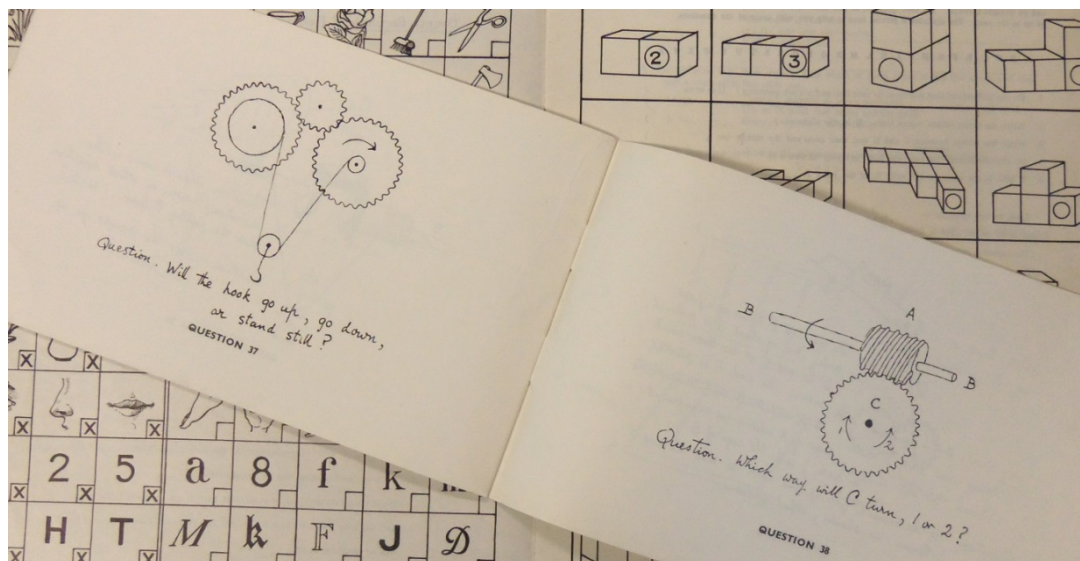 2
3
Question. Will the hook go up, go down,
or stand still?
QUESTION 37
B
A
B
C
1
2
Question. Which way will C turn, 1 or 2?
QUESTION 38
X
X
X
X
X
X
2
5
a
8
f
k
X
H
T
M
k
F
J
D
X
X